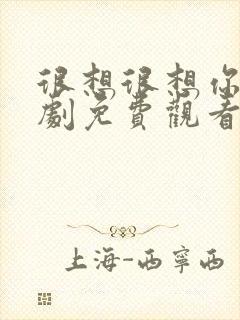 很想很想你
劇免費觀看
上海-西寧西